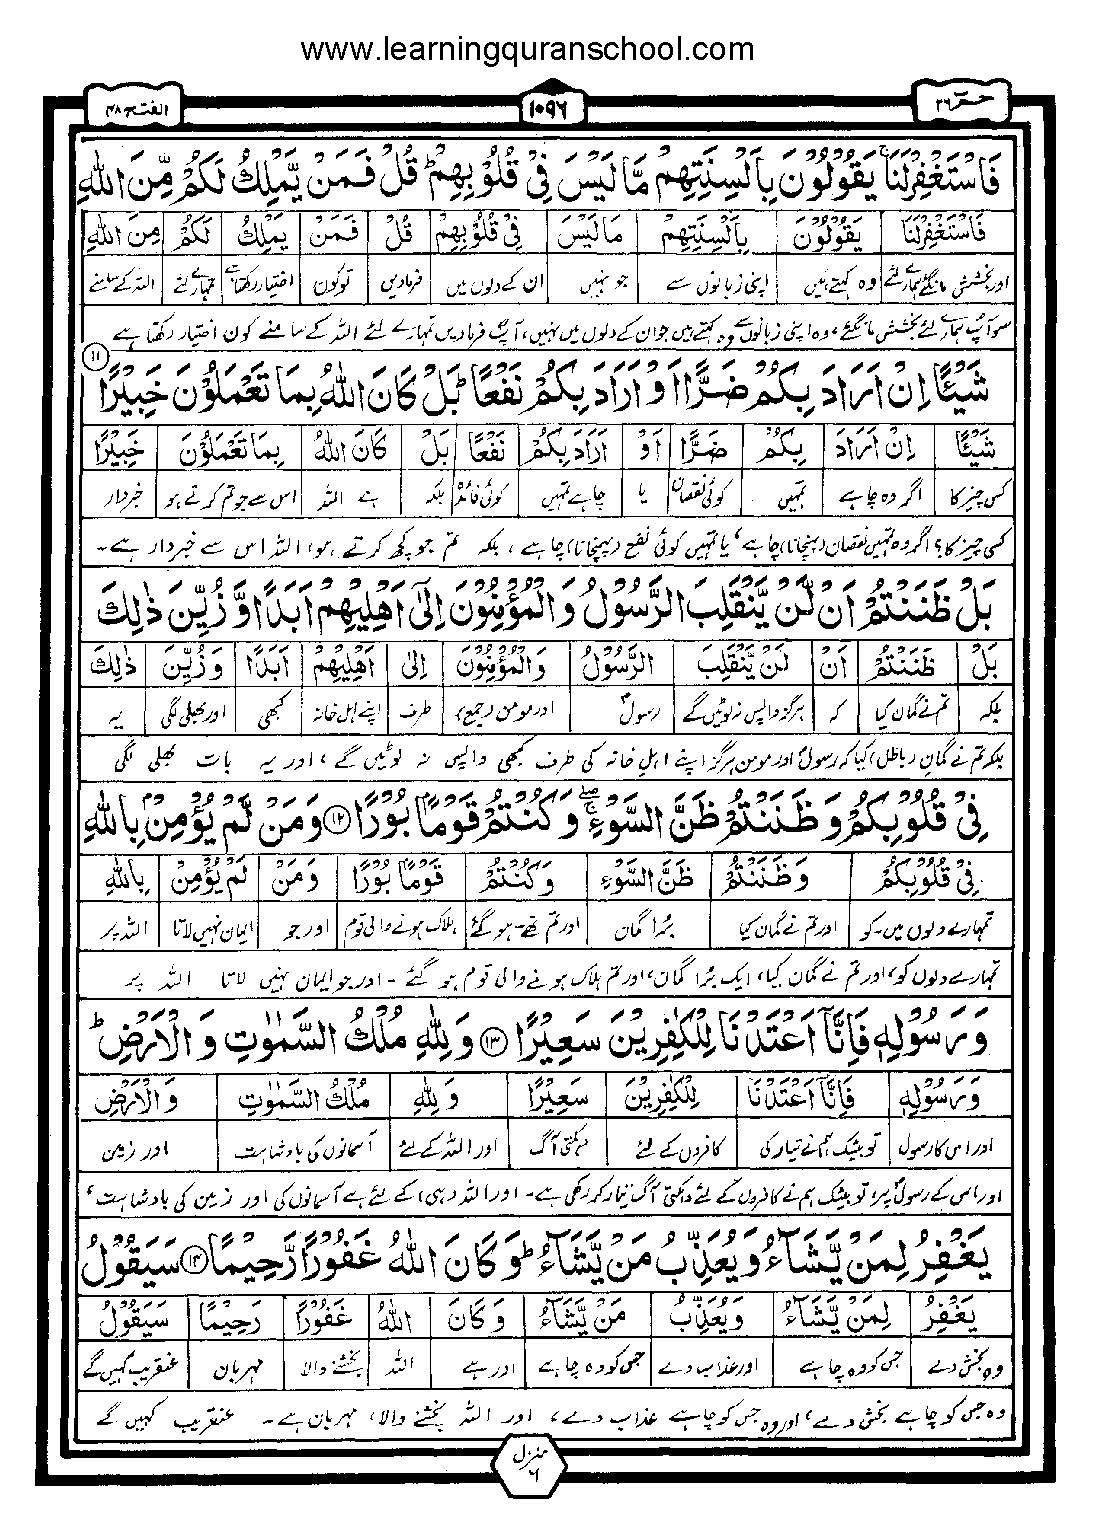 www.learningquranschool.com
حٰمٓ ۲۶
۱۰۹۶
الفتح ۴۸
فَاسْتَغْفِرْلَنَا ۚ يَقُوْلُوْنَ بِاَلْسِنَتِهِمْ مَّا لَيْسَ فِيْ قُلُوْبِهِمْ ؕ قُلْ فَمَنْ يَّمْلِكُ لَكُمْ مِّنَ اللّٰهِ
فَاسْتَغْفِرْلَنَا يَقُوْلُوْنَ بِاَلْسِنَتِهِمْ مَا لَيْسَ فِيْ قُلُوْبِهِمْ قُلْ فَمَنْ يَمْلِكُ لَكُمْ مِنَ اللّٰهِ
اور بخشش مانگئے ہمارے لئے وہ کہتے ہیں اپنی زبانوں سے جو نہیں ان کے دلوں میں فرمادیں تو کون اختیار رکھتا ہے تمہارے لئے اللہ کے سامنے
سو آپ ہمارے لئے بخشش مانگئے، وہ اپنی زبانوں سے وہ کہتے ہیں جو ان کے دلوں میں نہیں، آپ فرمادیں تمہارے لئے اللہ کے سامنے کون اختیار رکھتا ہے
شَيْـًٔا اِنْ اَرَادَ بِكُمْ ضَرًّا اَوْ اَرَادَ بِكُمْ نَفْعًا ؕ بَلْ كَانَ اللّٰهُ بِمَا تَعْمَلُوْنَ خَبِيْرًا ۱۱
شَيْـًٔا اِنْ اَرَادَ بِكُمْ ضَرًّا اَوْ اَرَادَ بِكُمْ نَفْعًا بَلْ كَانَ اللّٰهُ بِمَا تَعْمَلُوْنَ خَبِيْرًا
کسی چیز کا اگر وہ چاہے تمہیں کوئی نقصان یا چاہے تمہیں کوئی فائدہ بلکہ ہے اللہ اس سے جو تم کرتے ہو خبردار
کسی چیز کا؟ اگر وہ تمہیں نقصان (پہنچانا) چاہے، یا تمہیں کوئی نفع (پہنچانا) چاہے، بلکہ تم جو کچھ کرتے ہو، اللہ اس سے خبردار ہے۔
بَلْ ظَنَنْتُمْ اَنْ لَّنْ يَّنْقَلِبَ الرَّسُوْلُ وَالْمُؤْمِنُوْنَ اِلٰٓى اَهْلِيْهِمْ اَبَدًا وَّزُيِّنَ ذٰلِكَ
بَلْ ظَنَنْتُمْ اَنْ لَنْ يَّنْقَلِبَ الرَّسُوْلُ وَالْمُؤْمِنُوْنَ اِلٰى اَهْلِيْهِمْ اَبَدًا وَزُيِّنَ ذٰلِكَ
بلکہ تم نے گمان کیا کہ ہرگز واپس نہ لوٹیں گے رسولؐ اور مومن (جمع) طرف اپنے اہل خانہ کبھی اور بھلی لگی یہ
بلکہ تم نے گمان (باطل) کیا کہ رسولؐ اور مومن ہرگز اپنے اہل خانہ کی طرف کبھی واپس نہ لوٹیں گے، اور یہ بات بھلی لگی
فِيْ قُلُوْبِكُمْ وَظَنَنْتُمْ ظَنَّ السَّوْءِ ۖۚ وَكُنْتُمْ قَوْمًۢا بُوْرًا ۱۲ وَمَنْ لَّمْ يُؤْمِنْۢ بِاللّٰهِ
فِيْ قُلُوْبِكُمْ وَظَنَنْتُمْ ظَنَّ السَّوْءِ وَكُنْتُمْ قَوْمًۢا بُوْرًا وَمَنْ لَمْ يُؤْمِنْ بِاللّٰهِ
تمہارے دلوں میں۔ کو اور تم نے گمان کیا بُرا گمان اور تم تھے۔ ہو گئے ہلاک ہونے والی قوم اور جو ایمان نہیں لاتا اللہ پر
تمہارے دلوں کو، اور تم نے گمان کیا، ایک بُرا گمان، اور تم ہلاک ہونے والی قوم ہو گئے۔ اور جو ایمان نہیں لاتا اللہ پر
وَرَسُوْلِهٖ فَاِنَّآ اَعْتَدْنَا لِلْكٰفِرِيْنَ سَعِيْرًا ۱۳ وَلِلّٰهِ مُلْكُ السَّمٰوٰتِ وَالْاَرْضِ ؕ
وَرَسُوْلِهٖ فَاِنَّآ اَعْتَدْنَا لِلْكٰفِرِيْنَ سَعِيْرًا وَلِلّٰهِ مُلْكُ السَّمٰوٰتِ وَالْاَرْضِ
اور اس کا رسول تو بیشک ہم نے تیار کی کافروں کے لئے دہکتی آگ اور اللہ کے لئے آسمانوں کی بادشاہت اور زمین
اور اس کے رسولؐ پر، تو بیشک ہم نے کافروں کے لئے دہکتی آگ تیار کر رکھی ہے۔ اور اللہ (ہی) کے لئے ہے آسمانوں کی اور زمین کی بادشاہت،
يَغْفِرُ لِمَنْ يَّشَآءُ وَيُعَذِّبُ مَنْ يَّشَآءُ ؕ وَكَانَ اللّٰهُ غَفُوْرًا رَّحِيْمًا ۱۴ سَيَقُوْلُ
يَغْفِرُ لِمَنْ يَّشَآءُ وَيُعَذِّبُ مَنْ يَّشَآءُ وَكَانَ اللّٰهُ غَفُوْرًا رَحِيْمًا سَيَقُوْلُ
وہ بخش دے جس کو وہ چاہے اور عذاب دے جس کو وہ چاہے اور ہے اللہ بخشنے والا مہربان عنقریب کہیں گے
وہ جس کو چاہے بخش دے، اور وہ جس کو چاہے عذاب دے، اور اللہ بخشنے والا، مہربان ہے۔ عنقریب کہیں گے
منزل ۶